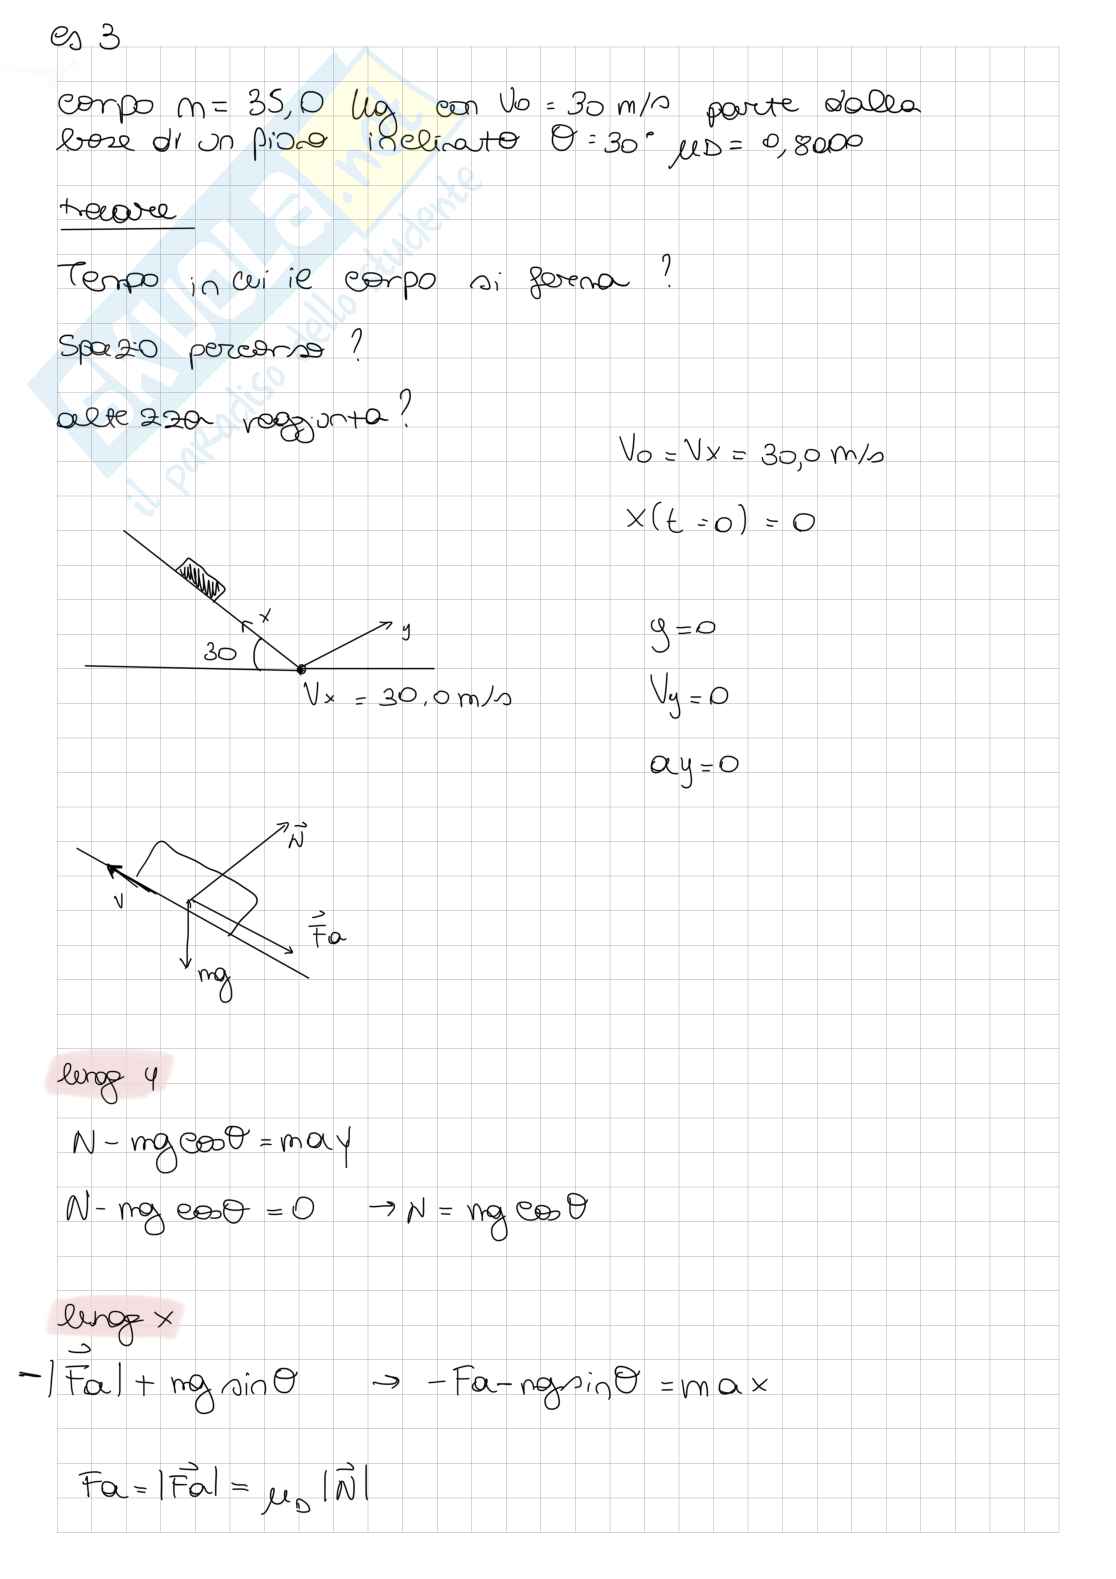 es 3
corpo m = 35,0 kg con V0 = 30 m/s parte dalla
base di un piano inclinato θ = 30° μD = 0,8000
trovare
Tempo in cui il corpo si ferma ?
Spazio percorso ?
altezza raggiunta ?
V0 = Vx = 30,0 m/s
x(t=0) = 0
x
y
30
Vx = 30,0 m/s
y=0
Vy=0
ay=0
N
V
Fa
mg
lungo y
N - mg cosθ = may
N - mg cosθ = 0 → N = mg cosθ
lungo x
-|Fa| + mg sinθ → -Fa - mg sinθ = max
Fa = |Fa| = μD |N|
SKUOLA.net
il paradiso dello studente